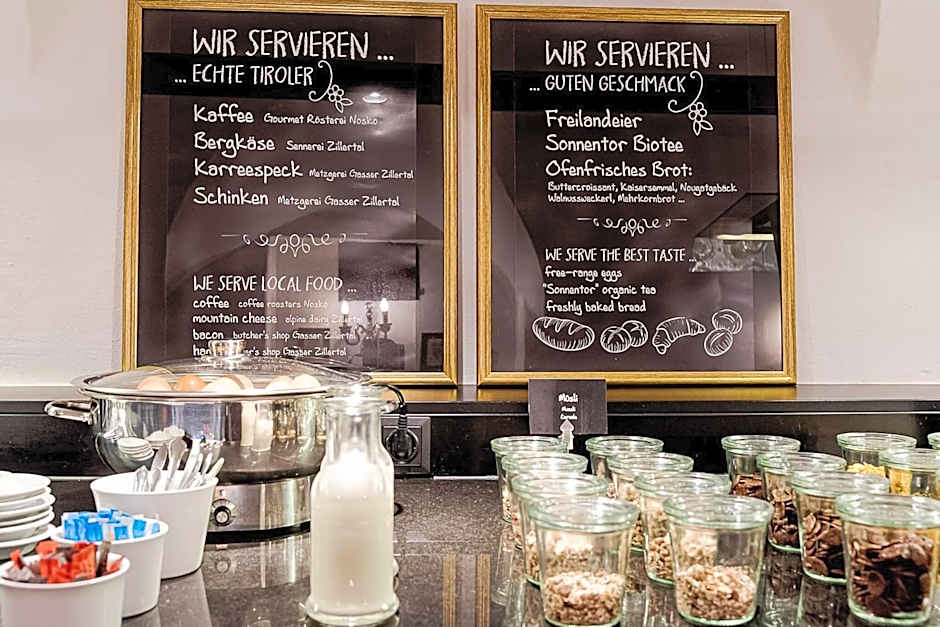 WIR SERVIEREN ...
... ECHTE TIROLER
Kaffee Gourmet Rösterei Nosko
Bergkäse Sennerei Zillertal
Karreespeck Metzgerei Gasser Zillertal
Schinken Metzgerei Gasser Zillertal
WE SERVE LOCAL FOOD ...
coffee coffee roasters Nosko
mountain cheese alpine dairy Zillertal
bacon butcher's shop Gasser Zillertal
ham butcher's shop Gasser Zillertal
WIR SERVIEREN ...
... GUTEN GESCHMACK
Freilandeier
Sonnentor Biotee
Ofenfrisches Brot:
Buttercroissant, Kaisersemmel, Nougatgebäck
Walnussweckerl, Mehrkornbrot ...
WE SERVE THE BEST TASTE ...
free-range eggs
"Sonnentor" organic tea
freshly baked bread
Müsli